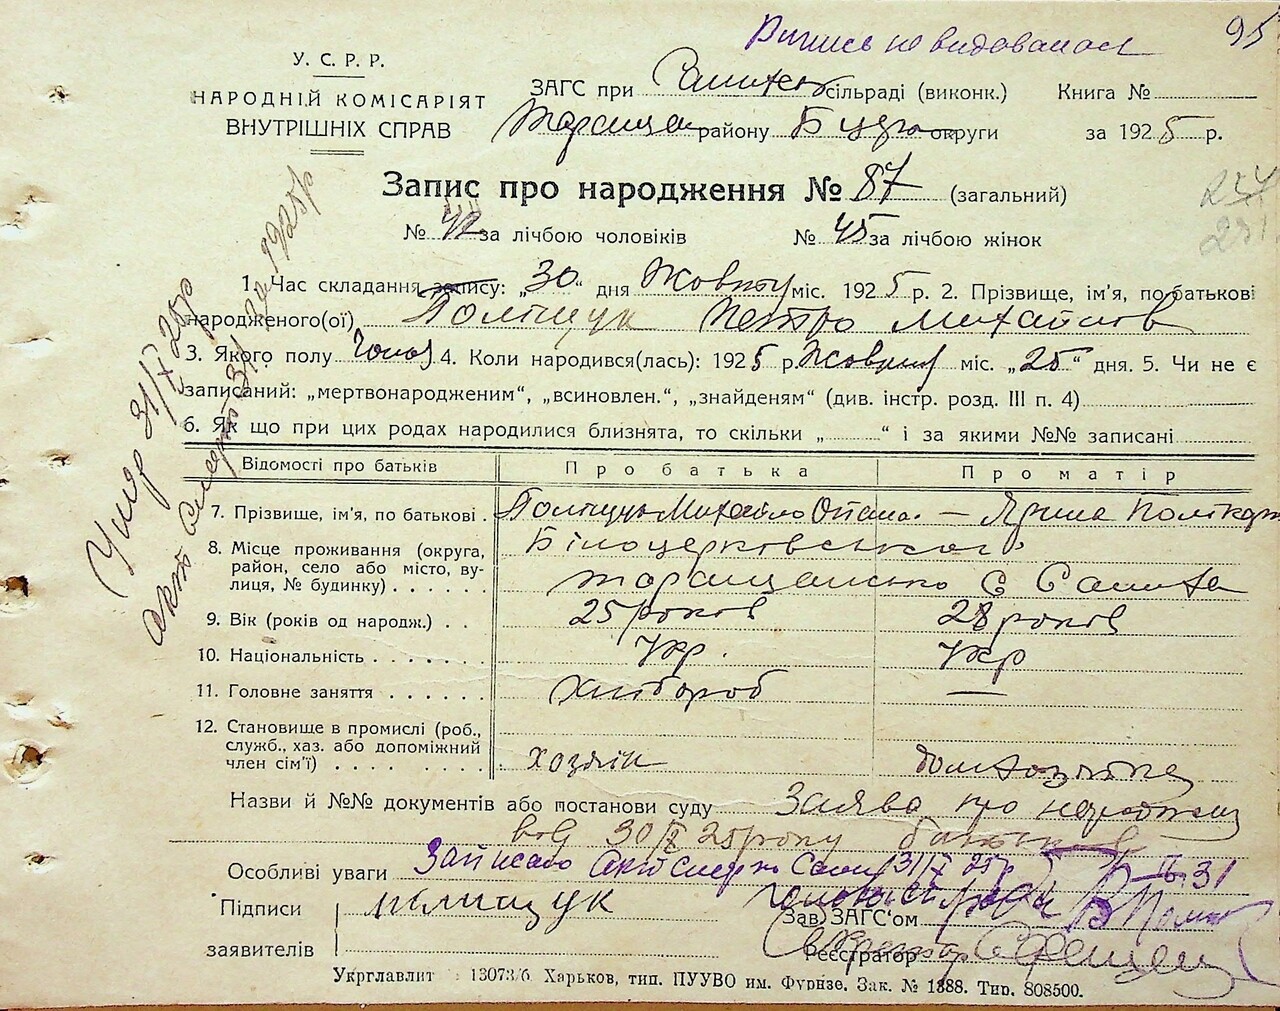 Випись не видавалася 95
У. С. Р. Р.
НАРОДНІЙ КОМІСАРІЯТ
ВНУТРІШНІХ СПРАВ
ЗАГС при сільраді (виконк.) Книга №
району Б Церк округи за 1925 р.
Запис про народження № 87 (загальний)
№ 42 за лічбою чоловіків № 45 за лічбою жінок
1. Час складання запису: „30“ дня Жовтня міс. 1925 р. 2. Прізвище, ім'я, по батькові
народженого(ої) Поліщук Петро Михайлов
3. Якого полу чолов 4. Коли народився(лась): 1925 р. Жовтня міс. „25“ дня. 5. Чи не є
записаний: „мертвонародженим“, „всиновлен.“, „знайденям“ (див. інстр. розд. III п. 4)
6. Як що при цих родах народилися близнята, то скільки „ “ і за якими №№ записані
Відомості про батьків Про батька Про матір
7. Прізвище, ім'я, по батькові . Поліщук Михайло — Ярина
8. Місце проживання (округа, Білоцерковського
район, село або місто, ву-
лиця, № будинку) . . . . . . с
9. Вік (років од народж.) . . 25 років 28 років
10. Національність . . . . . . . Укр. Укр
11. Головне заняття . . . . . . Хлібороб —
12. Становище в промислі (роб.,
служб., хаз. або допоміжний
член сім'ї) . . . . . . . . . хозяін домхозяйка
Назви й №№ документів або постанови суду Заява про народжен
від 30/X 25 року
Особливі уваги Записано акт смерті
Підписи поліщук Зав. ЗАГС'ом
заявителів Реєстратор Секретар
Укрглавлит 13073/б. Харьков, тип. ПУУВО им. Фрунзе. Зак. № 1388. Тир. 808500.
Умер 31/X 25р
акт смерті 31 за 1925р